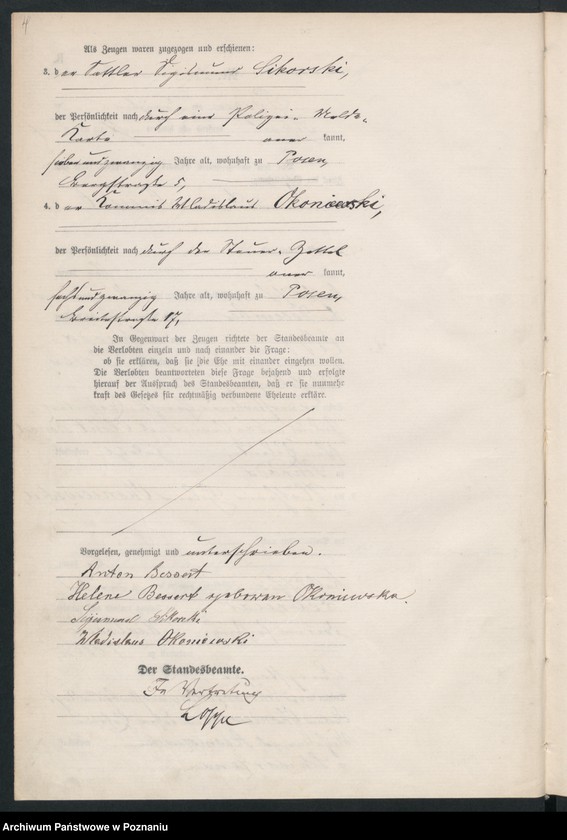 4
Als Zeugen waren zugezogen und erschienen:
3. der Sattler Sigismund Sikorski,
der Persönlichkeit nach durch eine Polizei-Melde-
Karte anerkannt,
siebenundzwanzig Jahre alt, wohnhaft zu Posen,
Bergstraße 5,
4. der Kommis Wladislaus Okoniewski,
der Persönlichkeit nach durch den Steuer-Zettel
anerkannt,
sechsundzwanzig Jahre alt, wohnhaft zu Posen,
17,
In Gegenwart der Zeugen richtete der Standesbeamte an
die Verlobten einzeln und nach einander die Frage:
ob sie erklären, daß sie die Ehe mit einander eingehen wollen.
Die Verlobten beantworteten diese Frage bejahend und erfolgte
hierauf der Ausspruch des Standesbeamten, daß er sie nunmehr
kraft des Gesetzes für rechtmäßig verbundene Eheleute erkläre.
Vorgelesen, genehmigt und unterschrieben.
Anton Bessert
Helene Bessert geborene Okoniewska.
Sigismund Sikorski
Wladislaus Okoniewski
Der Standesbeamte.
In Vertretung
Archiwum Państwowe w Poznaniu